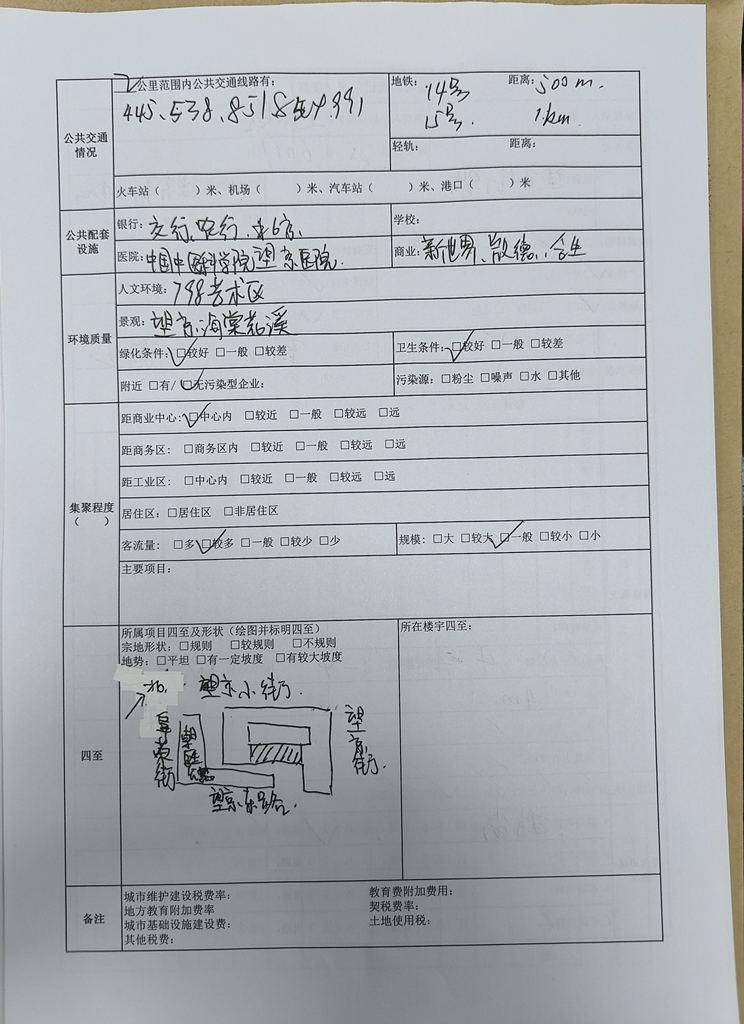 公共交通情况
2公里范围内公共交通线路有:
445、538、851
991
地铁: 14号 距离: 500m.
15号. 1km
轻轨: 距离:
火车站( )米、机场( )米、汽车站( )米、港口( )米
公共配套设施
银行: 交行、 学校:
医院: 中国中医科学院望京医院. 商业: 新世界、
环境质量
人文环境: 798艺术区
景观: 望京海棠花溪
绿化条件: □较好 □一般 □较差 卫生条件: □较好 □一般 □较差
附近 □有/ □无污染型企业: 污染源: □粉尘 □噪声 □水 □其他
集聚程度
( )
距商业中心: □中心内 □较近 □一般 □较远 □远
距商务区: □商务区内 □较近 □一般 □较远 □远
距工业区: □中心内 □较近 □一般 □较远 □远
居住区: □居住区 □非居住区
客流量: □多 □较多 □一般 □较少 □少 规模: □大 □较大 □一般 □较小 □小
主要项目:
四至
所属项目四至及形状(绘图并标明四至) 所在楼宇四至:
宗地形状: □规则 □较规则 □不规则
地势: □平坦 □有一定坡度 □有较大坡度
北. 望京小街.
阜荣街
望京街.
望京东路.
备注
城市维护建设税费率: 教育费附加费用:
地方教育附加费率 契税费率:
城市基础设施建设费: 土地使用税:
其他税费: